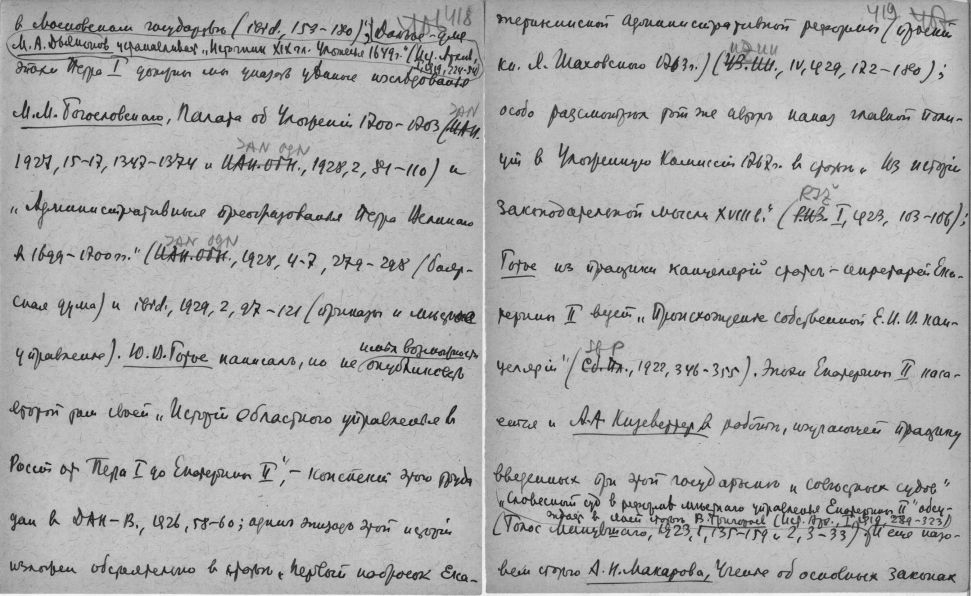 418
в Московском государстве (ibid., 153-180);
М.А. Дьяконов „Источники Уложения 1649 г." (Ист. Архив,
1919,
эпохи Петра I должны мы указать исследования
М.М. Богословскаго, Палата об Уложеніи 1700-1703 (
ІАN
1927, 15-17, 1347-1374 и ИАН. ОГН., 1928, 2, 81-110) и
ІАN OGN
„Административные преобразования Петра Великаго
в 1699-1700 гг." (ИАН. ОГН., 1928, 4-7, 279-298 (бояр-
ІАN OGN
ская дума) и ibid., 1929, 2, 97-121 (приказы и
управление). Ю.В. Готье написалъ, но не опубликовалъ
имѣя возможности
второй том своей „Исторіи областного управленія в
Россіи от Петра I до Екатерины II", - конспект этого труда
дан в ДАН-В., 1926, 58-60; один эпизод этой исторіи
изложен обстоятельно в статьѣ „Первый набросок Ека-
419
терининской административной реформы (проект
кн. Я. Шаховского 1763 г.) (ИЗ. ИИ., IV, 1929, 172-180);
особо разсмотрѣл тот же автор наказ главной Поли-
ціи в Уложенную Комиссію 1767 г. в статьѣ „Из исторіи
законодательной мысли XVIII в." (РИЖ. I, 1923, 103-106);
RIŽ
Готье из практики канцелярій статсъ-секретарей Ека-
терины II „Происхожденіе собственной Е.И.В. кан-
целяріи" (Сб. Пл., 1922, 346-355). Эпохи Екатерины II каса-
ется и А.А. Кизеветтер в работѣ, изучающей практику
введенных при этой государынѣ и совѣстных судов
„Словесный суд в реформѣ мѣстнаго управленія Екатерины II"
в статьѣ В. Григорьев (Ист. Арх., I, 1919, 284-323)
(Голос Минувшаго, 1923, I, 135-159 и 2, 3-33). еще назо-
вем статью А.Н. Макарова, Ученіе об основных законах